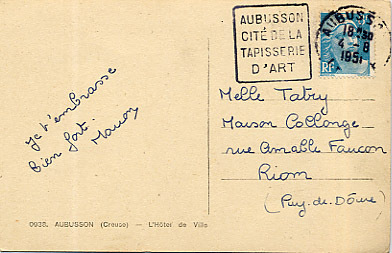 AUBUSSON
CITÉ DE LA
TAPISSERIE
D'ART
AUBUSSON
18H30
4 - 8
1951
RF
Je t'embrasse
bien fort.
Manon
Melle Tatry
Maison Collonge
rue Amable Faucon
Riom
(Puy-de-Dôme)
0938. AUBUSSON (Creuse) — L'Hôtel de Ville